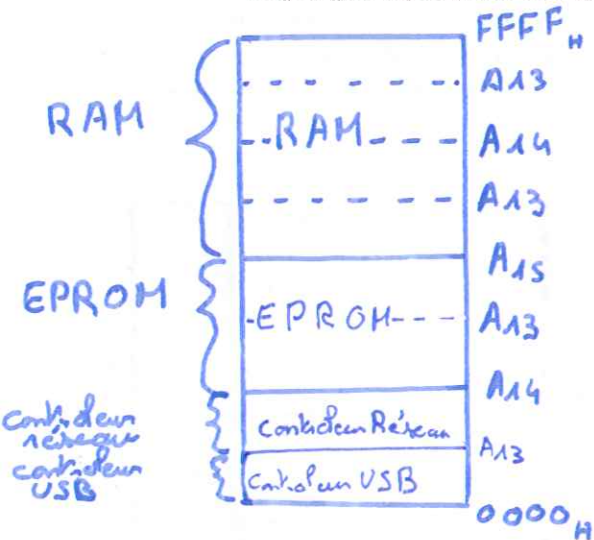 FFFF H
A13
RAM
RAM
A14
A13
A15
EPROM
EPROM
A13
A14
contrôleur
réseau
Contrôleur Réseau
A13
contrôleur
USB
Contrôleur USB
0000 H